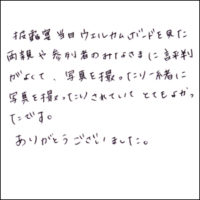 披露宴当日ウェルカムボードを見た
両親や参列者のみなさまに評判
がよくて、写真を撮ったり一緒に
写真を撮ったりされていてとてもよかっ
たです。
ありがとうございました。